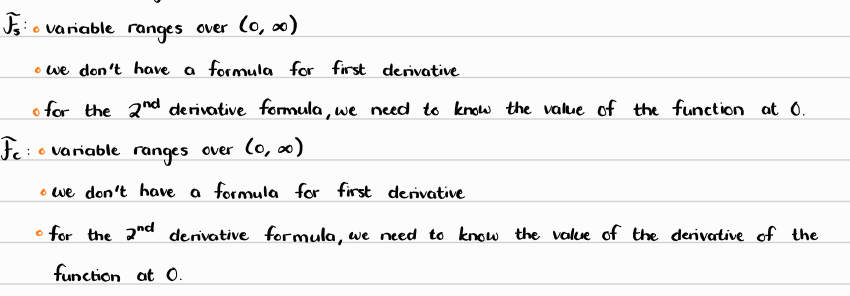 F̃s: • variable ranges over (0, ∞)
• we don't have a formula for first derivative
• for the 2nd derivative formula, we need to know the value of the function at 0.
F̃c: • variable ranges over (0, ∞)
• we don't have a formula for first derivative
• for the 2nd derivative formula, we need to know the value of the derivative of the
function at 0.